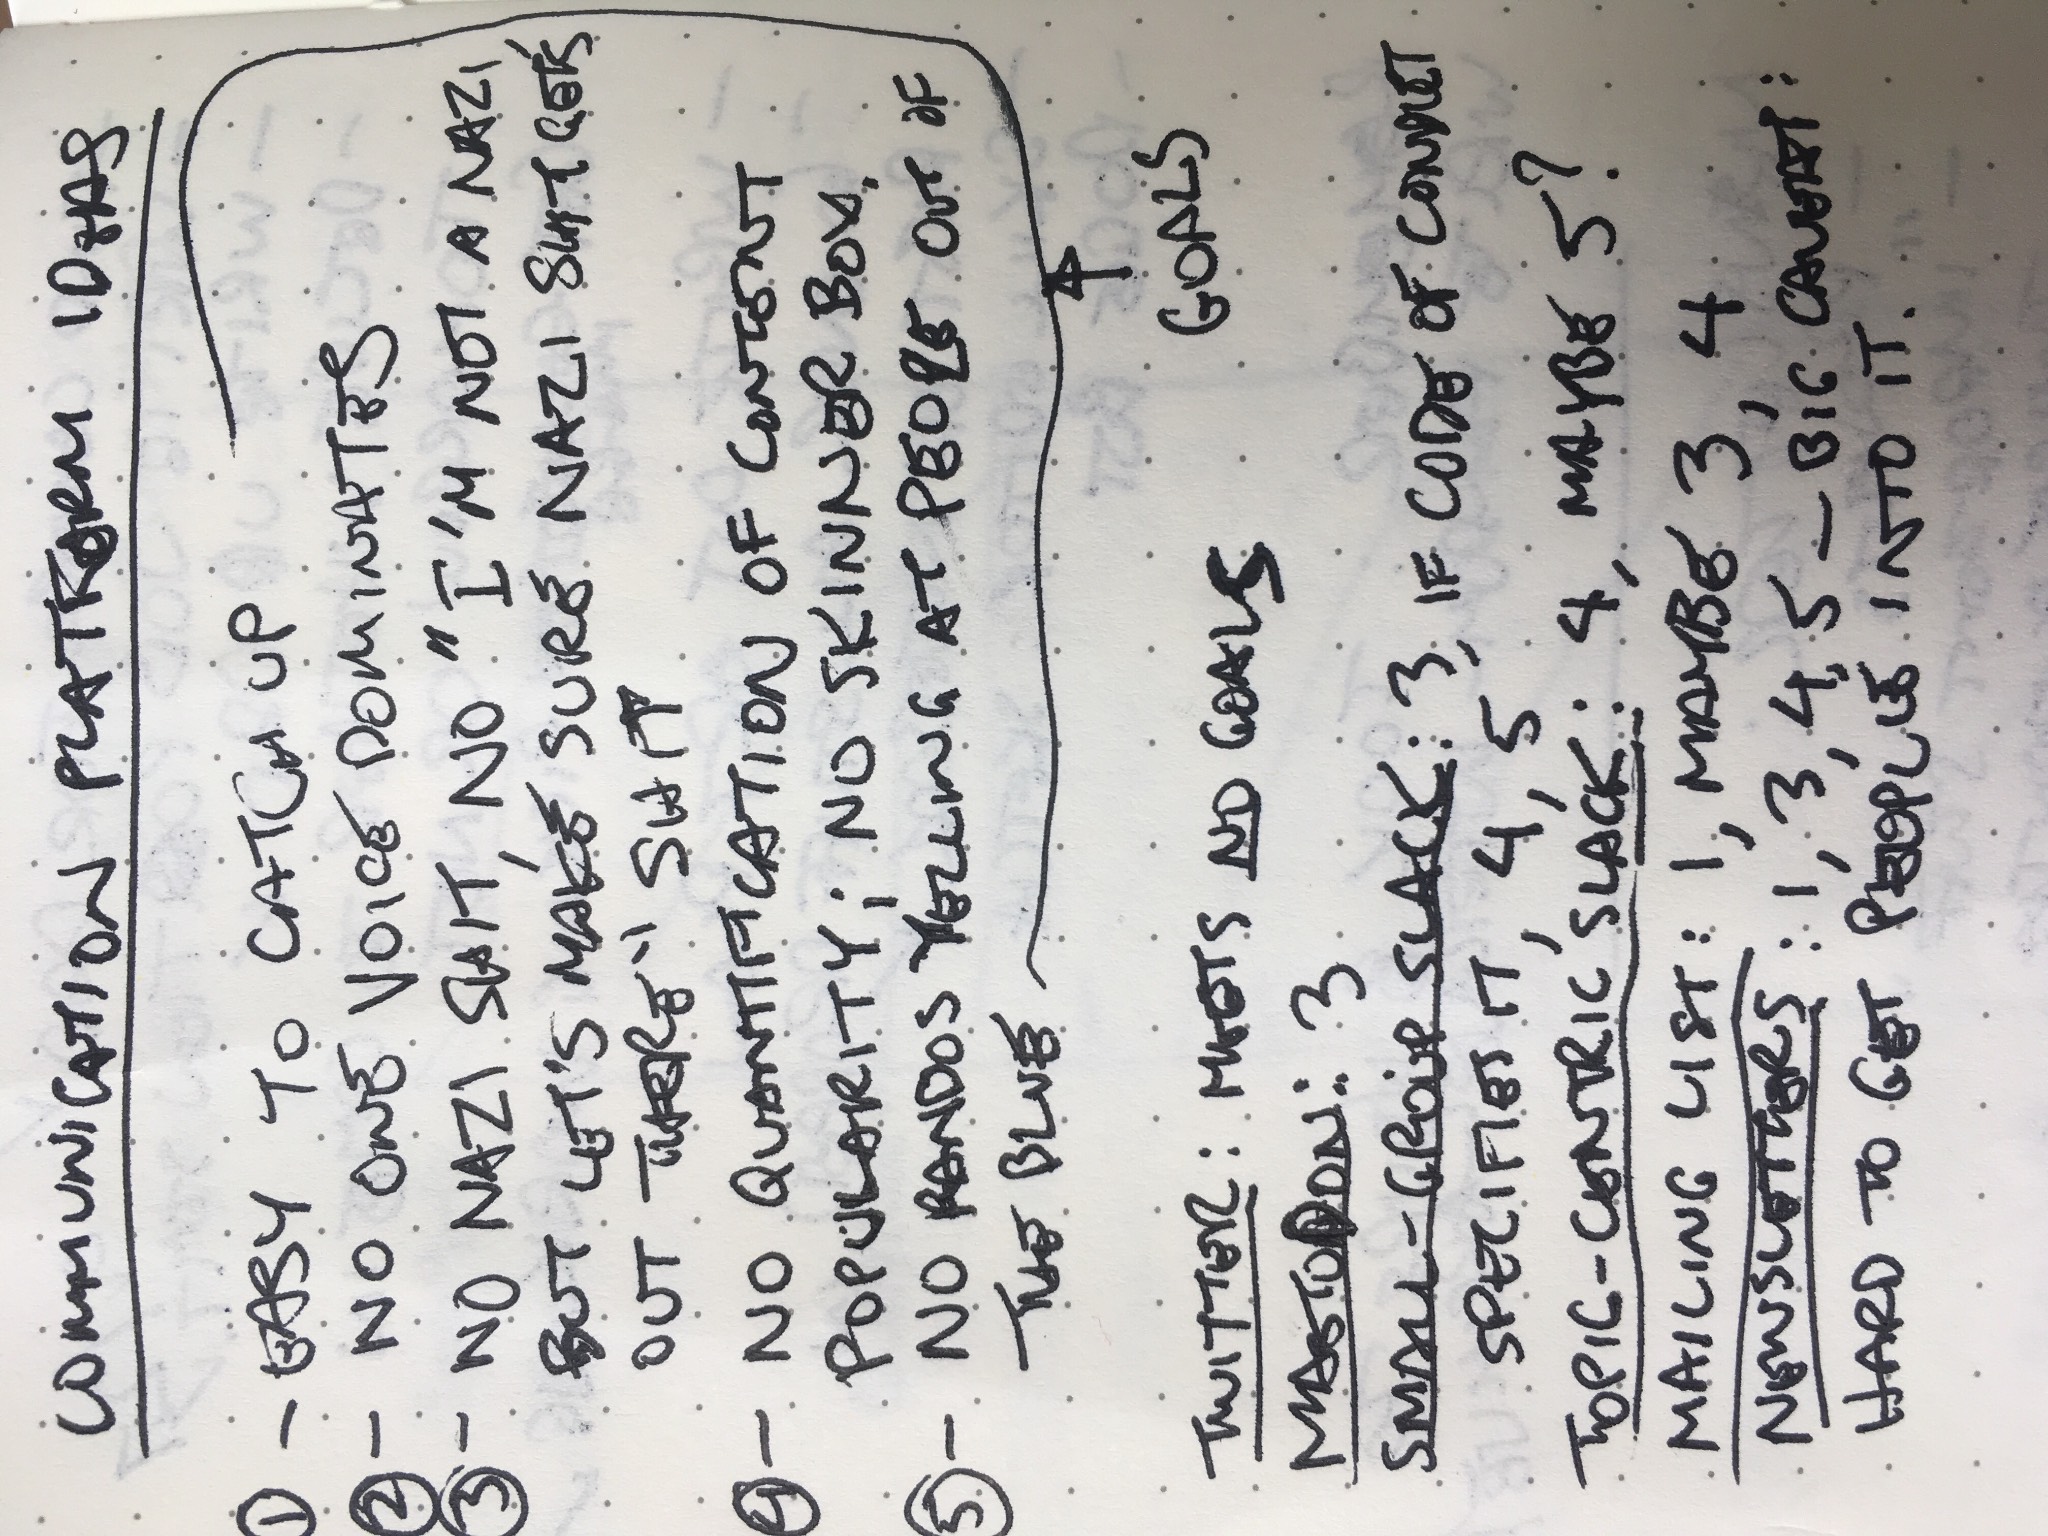 COMMUNICATION PLATFORM IDEAS
① - EASY TO CATCH UP
② - NO ONE VOICE DOMINATES
③ - NO NAZI SHIT, NO "I'M NOT A NAZI
BUT LET'S MAKE SURE NAZI SHIT GETS
OUT THERE" SHIT
④ - NO QUANTIFICATION OF CONTENT
POPULARITY; NO SKINNER BOX.
⑤ - NO RANDOS YELLING AT PEOPLE OUT OF
THE BLUE
GOALS
TWITTER: MEETS NO GOALS
MASTODON: 3
SMALL-GROUP SLACK: 3, IF CODE OF CONDUCT
SPECIFIES IT, 4, 5
TOPIC-CENTRIC SLACK: 4, MAYBE 5?
MAILING LIST: 1, MAYBE 3, 4
NEWSLETTERS: 1, 3, 4, 5 — BIG CAVEAT:
HARD TO GET PEOPLE INTO IT.